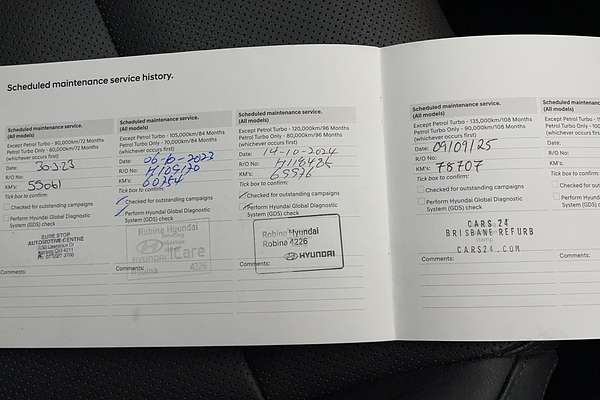 Scheduled maintenance service history.
Scheduled maintenance service.
(All models)
Except Petrol Turbo - 90,000km/72 Months
Petrol Turbo Only - 60,000km/72 Months
(whichever occurs first)
Date: 30-3-23
R/O No:
KM's: 55061
Tick box to confirm:
Checked for outstanding campaigns
Perform Hyundai Global Diagnostic
System (GDS) check
SURE STOP
AUTOMOTIVE CENTRE
Comments:
Scheduled maintenance service.
(All models)
Except Petrol Turbo - 105,000km/84 Months
Petrol Turbo Only - 70,000km/84 Months
(whichever occurs first)
Date: 06-10-2023
R/O No: H109170
KM's: 60254
Tick box to confirm:
Checked for outstanding campaigns
Perform Hyundai Global Diagnostic
System (GDS) check
Robina Hyundai
HYUNDAI iCare
Robina 4226
Comments:
Scheduled maintenance service.
(All models)
Except Petrol Turbo - 120,000km/96 Months
Petrol Turbo Only - 80,000km/96 Months
(whichever occurs first)
Date: 14-10-2024
R/O No: H118425
KM's: 65576
Tick box to confirm:
Checked for outstanding campaigns
Perform Hyundai Global Diagnostic
System (GDS) check
Robina Hyundai
Robina 4226
HYUNDAI
Comments:
Scheduled maintenance service.
(All models)
Except Petrol Turbo - 135,000km/108 Months
Petrol Turbo Only - 90,000km/108 Months
(whichever occurs first)
Date: 09/09/25
R/O No:
KM's: 78707
Tick box to confirm:
Checked for outstanding campaigns
Perform Hyundai Global Diagnostic
System (GDS) check
CARS 24
BRISBANE REFURB
CARS24.COM
Comments:
Scheduled maintenance
(All models)
Except Petrol Turbo
Petrol Turbo Only
(whichever occurs first)
Date:
R/O No:
KM's:
Tick box to confirm:
Checked for
Perform Hyundai
System (GDS)
Comments: